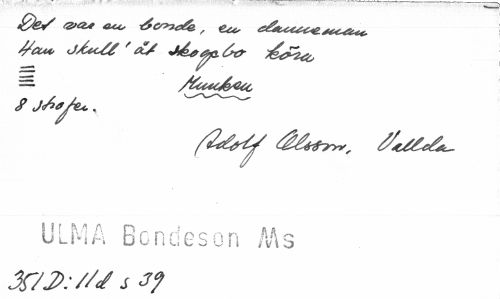 Det var en bonde, en danneman
Han skull' åt skoge bo köra
Munken
8 strofer.
Adolf Olsson, Vallda
ULMA Bondeson Ms
351 D:11d s 39